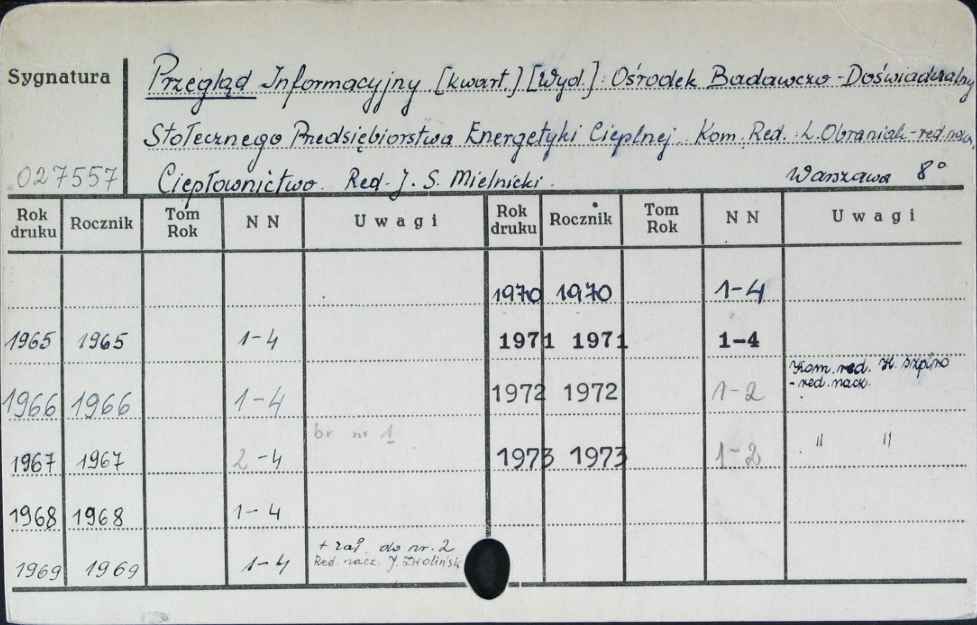 Sygnatura
Przegląd Informacyjny [kwart.] [Wyd.]: Ośrodek Badawczo-Doświadczalny
Stołecznego Przedsiębiorstwa Energetyki Cieplnej. Kom. Red.: L. Obraniak - red. nacz.
027557 Ciepłownictwo. Red. J. S. Mielnicki. Warszawa 8°
Rok druku Rocznik Tom Rok N N Uwagi Rok druku Rocznik Tom Rok N N Uwagi
1970 1970 1-4
1965 1965 1-4 1971 1971 1-4
Kom. red. H. Szpiro
- red. nacz.
1966 1966 1-4 1972 1972 1-2
br nr 1
1967 1967 2-4 1973 1973 1-2 " "
1968 1968 1-4
+ zał. do nr. 2
1969 1969 1-4 Red. nacz. J.